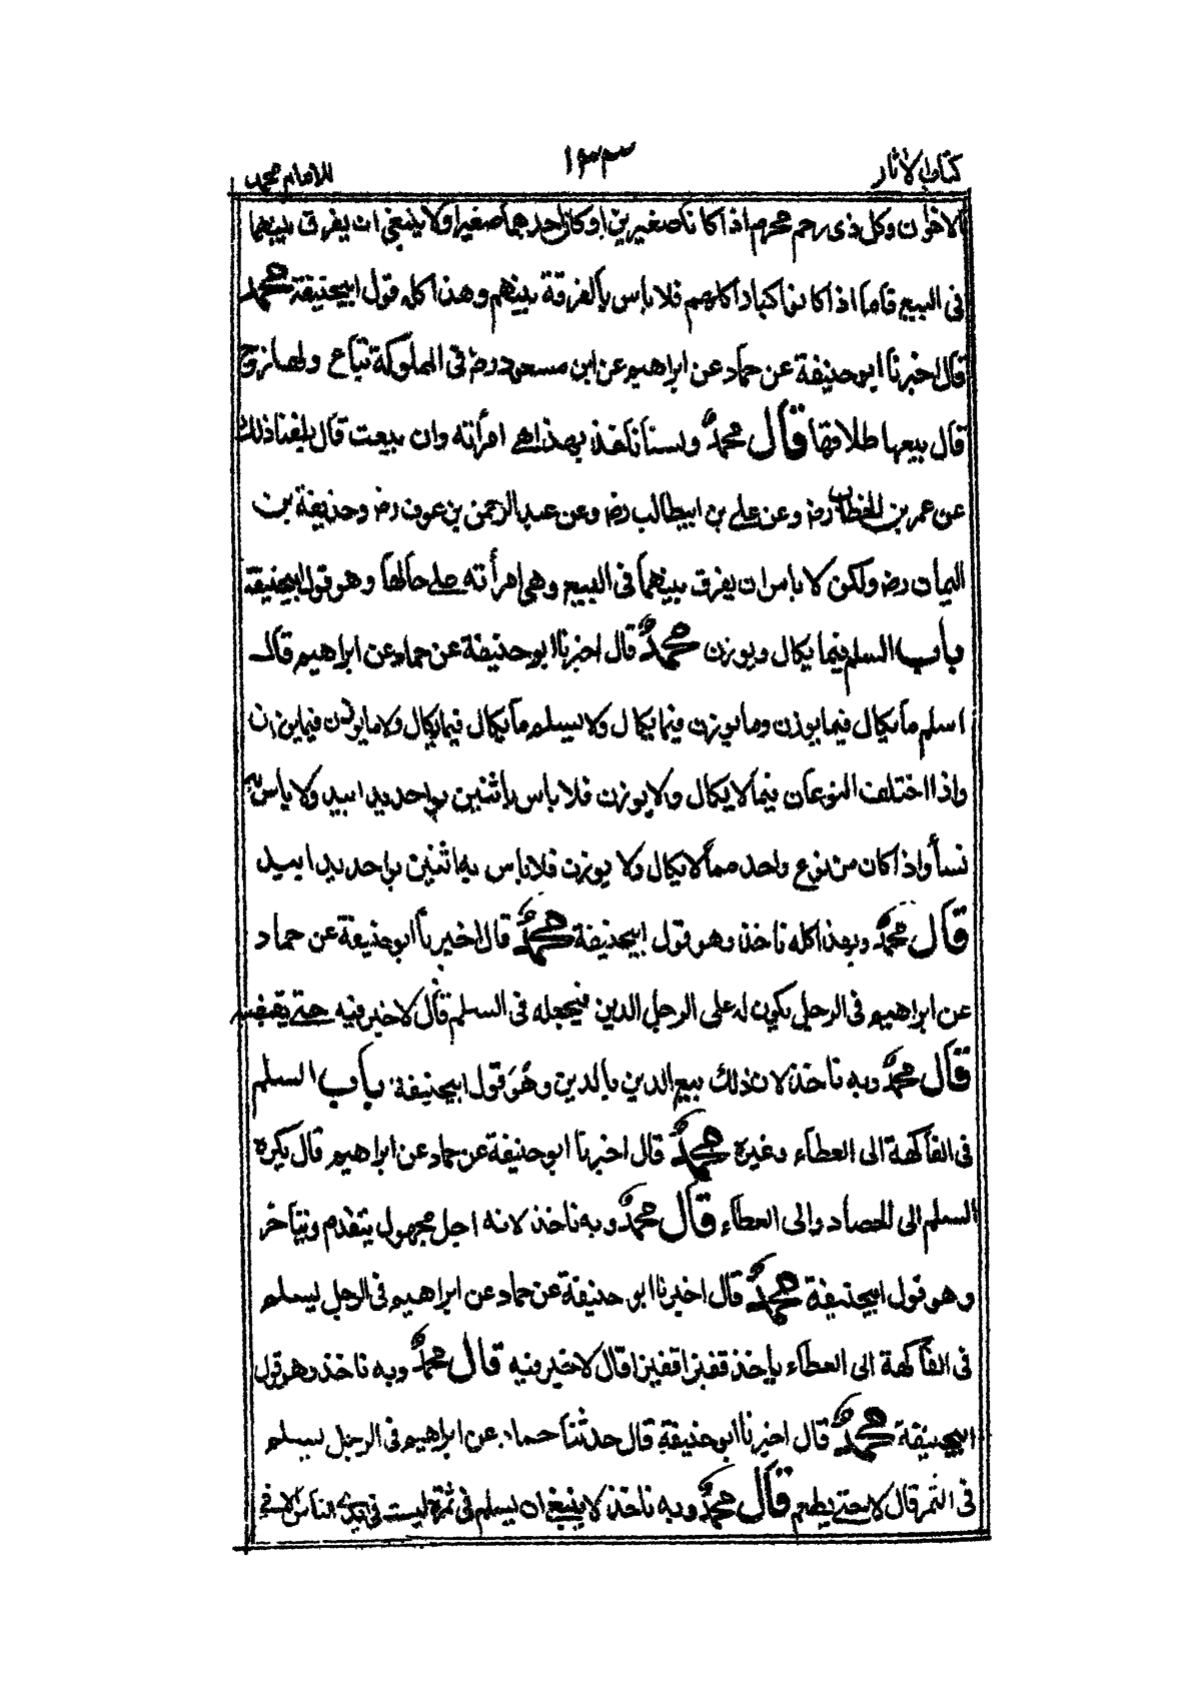 كتاب الآثار
١٣٣
للامام محمد
الاخوان وكل ذى رحم محرم اذا كانا صغيرين او كان احدهما صغيرا ولا ينبغى ان يفرق بينهما
فى البيع فاما اذا كانوا كبارا كلهم فلا باس بالفرقة بينهم وهذا كله قول ابيحنيفة محمد
قال اخبرنا ابو حنيفة عن حماد عن ابراهيم عن ابن مسعود رض فى المملوكة تباع ولها زوج
قال بيعها طلاقها قال محمد ولسنا ناخذ بهذا هى امرأته وان بيعت قال بلغنا ذلك
عن عمر بن الخطاب رض وعن على بن ابيطالب رض وعن عبد الرحمن بن عوف رض وحذيفة بن
اليمان رض ولكن لا باس ان يفرق بينهما فى البيع وهى امرأته على حالها وهو قول ابيحنيفة
باب السلم فيما يكال ويوزن محمد قال اخبرنا ابو حنيفة عن حماد عن ابراهيم قال
اسلم ما يكال فيما يوزن وما يوزن فيما يكال ولا يسلم ما يكال فيما يكال ولا ما يوزن فيما يوزن
واذا اختلف النوعان فيما لا يكال ولا يوزن فلا باس باثنين بواحد يدا بيد ولا باس به
نسأ واذا كان من نوع واحد مما لا يكال ولا يوزن فلا باس به اثنين بواحد يدا بيد
قال محمد وبهذا كله ناخذ وهو قول ابيحنيفة محمد قال اخبرنا ابو حنيفة عن حماد
عن ابراهيم فى الرجل يكون له على الرجل الدين فيجعله فى السلم قال لا خير فيه حتى يقبضه
قال محمد وبه ناخذ لان ذلك بيع الدين بالدين وهو قول ابيحنيفة باب السلم
فى الفاكهة الى العطاء وغيره محمد قال اخبرنا ابو حنيفة عن حماد عن ابراهيم قال يكره
السلم الى الحصاد والى العطاء قال محمد وبه ناخذ لانه اجل مجهول يتقدم ويتاخر
وهو قول ابيحنيفة محمد قال اخبرنا ابو حنيفة عن حماد عن ابراهيم فى الرجل يسلم
فى الفاكهة الى العطاء ياخذ قفيزا قفيزا قال لا خير فيه قال محمد وبه ناخذ وهو قول
ابيحنيفة محمد قال اخبرنا ابو حنيفة قال حدثنا حماد عن ابراهيم فى الرجل يسلم
فى الثمر قال لا حتى يطعم قال محمد وبه ناخذ لا ينبغى ان يسلم فى ثمرة ليست فى ايدى الناس الا فى